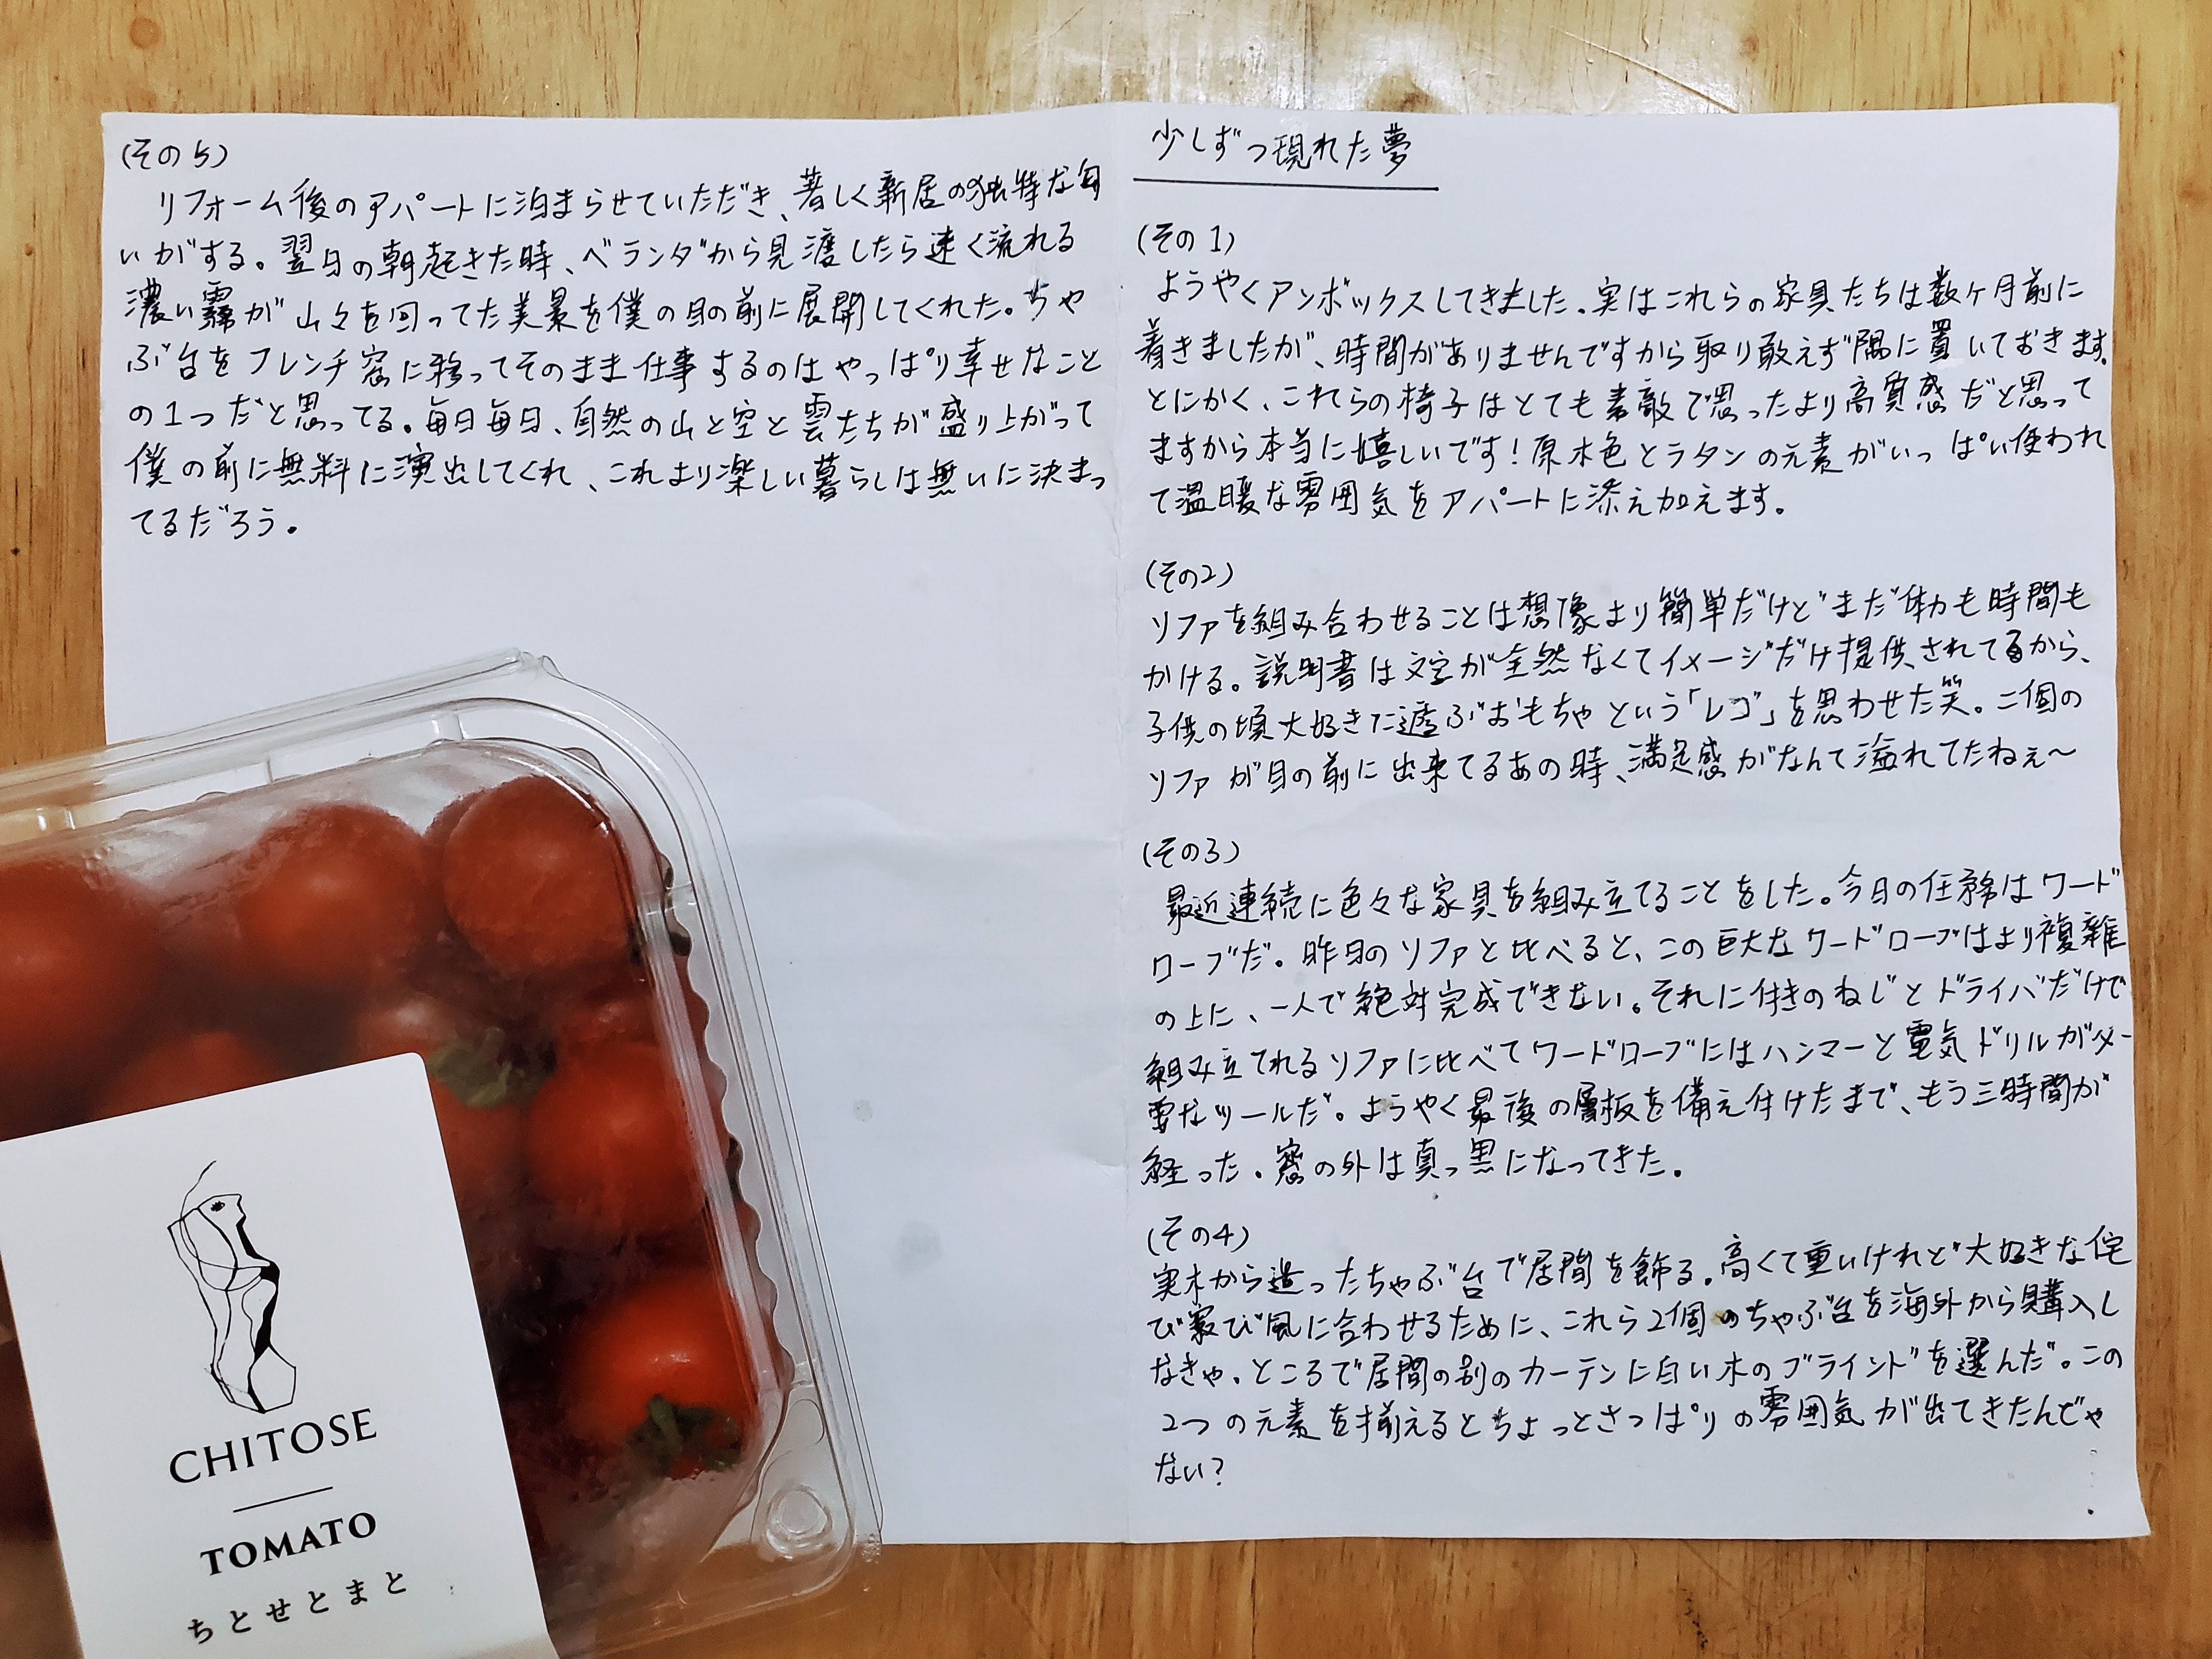 少しずつ現れた夢
(その1)
ようやくアンボックスしてきました。実はこれらの家具たちは数ヶ月前に
着きましたが、時間がありませんですから取り敢えず隅に置いておきます。
とにかく、これらの椅子はとても素敵で思ったより高質感だと思って
ますから本当に嬉しいです!原木色とラタンの元素がいっぱい使われ
て温暖な雰囲気をアパートに添え加えます。
(その2)
ソファを組み合わせることは想像より簡単だけどまだ体力も時間も
かける。説明書は文字が全然なくてイメージだけ提供されてるから、
子供の頃大好きに遊ぶおもちゃという「レゴ」を思わせた笑。二個の
ソファが目の前に出来てるあの時、満足感がなんて溢れてたねぇ〜
(その3)
最近連続に色々な家具を組み立てることをした。今日の任務はワード
ローブだ。昨日のソファと比べると、この巨大なワードローブはより複雑
の上に、一人で絶対完成できない。それに付きのねじとドライバだけで
組み立てれるソファに比べてワードローブにはハンマーと電気ドリルが必
要なツールだ。ようやく最後の層板を備え付けたまで、もう三時間が
経った。窓の外は真っ黒になってきた。
(その4)
実木から造ったちゃぶ台で居間を飾る。高くて重いけれど大好きな侘
び寂び風に合わせるために、これら2個のちゃぶ台を海外から購入し
なきゃ。ところで居間の別のカーテンに白い木のブラインドを選んだ。この
2つの元素を揃えるとちょっとさっぱりの雰囲気が出てきたんじゃ
ない?
(その5)
リフォーム後のアパートに泊まらせていただき、著しく新居の独特な匂
いがする。翌日の朝起きた時、ベランダから見渡したら速く流れる
濃い霧が山々を回ってた美景を僕の目の前に展開してくれた。ちゃ
ぶ台をフレンチ窓に移ってそのまま仕事するのはやっぱり幸せなこと
の1つだと思ってる。毎日毎日、自然の山と空と雲たちが盛り上がって
僕の前に無料に演出してくれ、これより楽しい暮らしは無いに決まっ
てるだろう。
CHITOSE
TOMATO
ちとせとまと